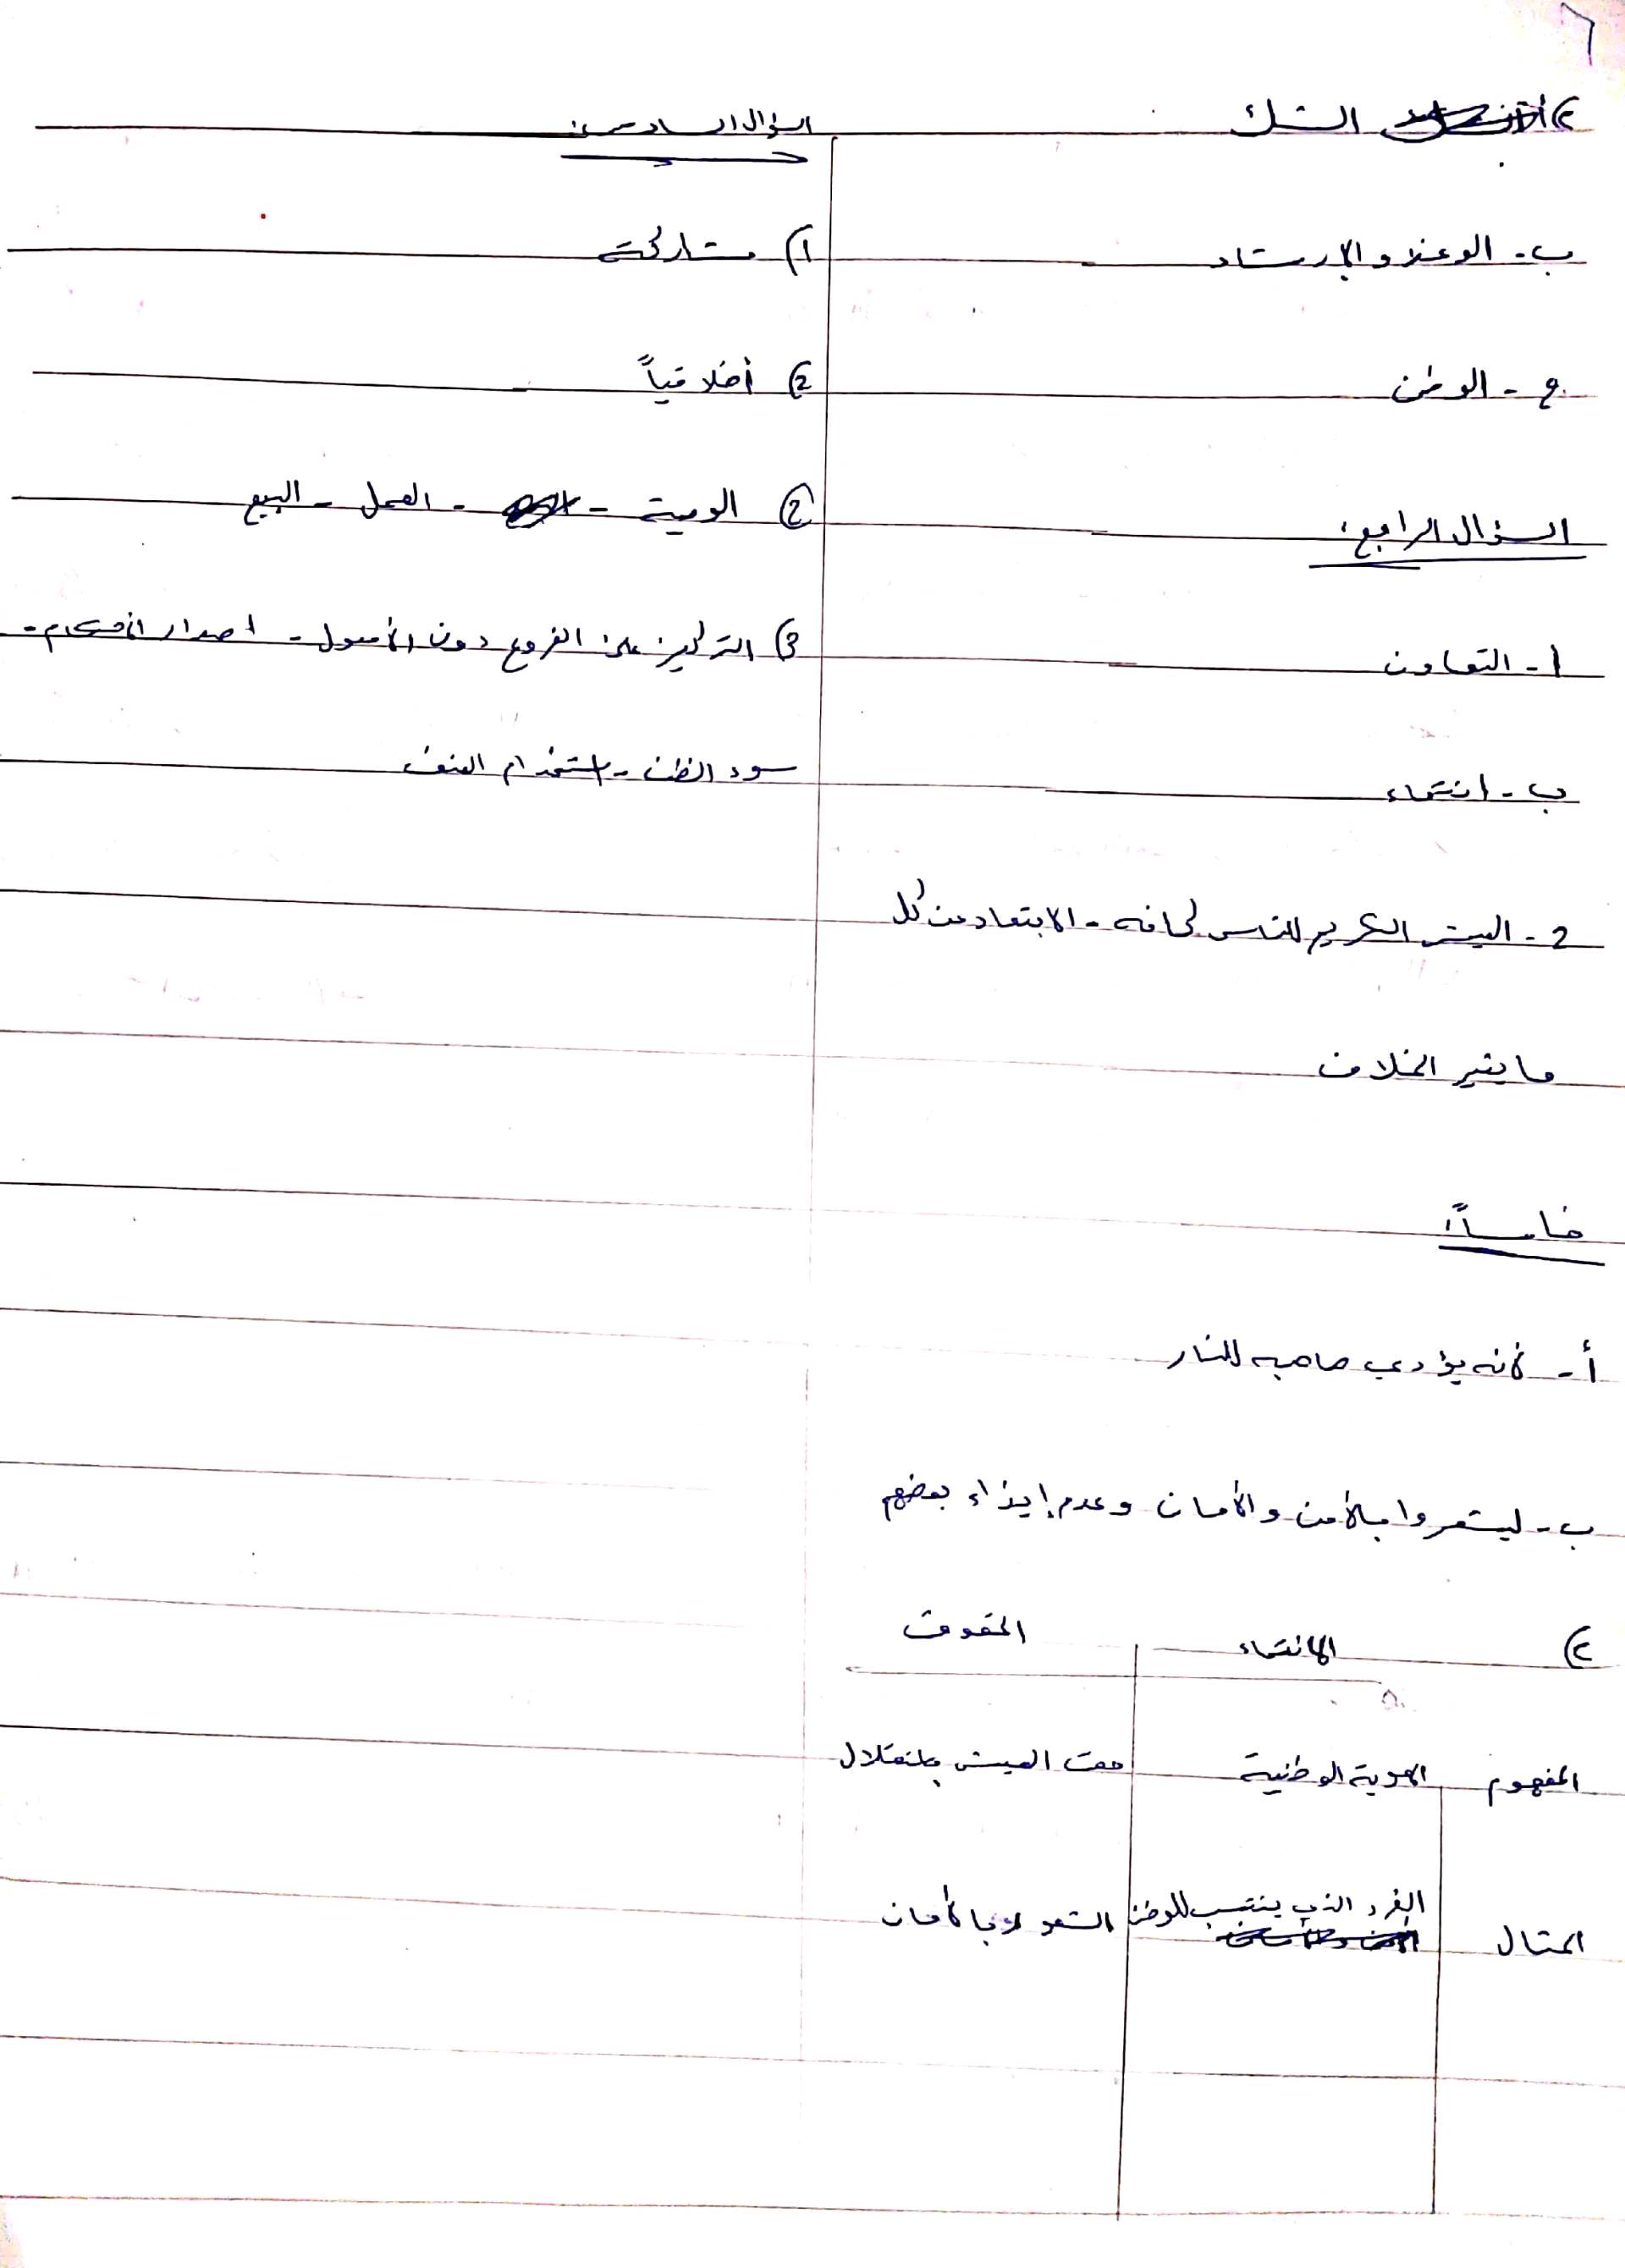 ٦
٢) الشك
ب- الوعظ والإرشاد
ج - الوطن
السؤال الرابع:
١- التعاون
ب- انتماء
2- العيش الكريم للناس كافه - الابتعاد عن كل
ما يثير الخلاف
خامساً:
أ- لأنه يؤدي صاحبه للنار
ب- ليشعروا بالأمن والأمان وعدم إيذاء بعضهم
٢) الانتماء الحقوق
المفهوم الهوية الوطنية حق العيش باستقلال
المثال الفرد الذي ينتسب للوطن الشعور بالأمان
السؤال السادس:
1) مشاركة
2) أخلاقياً
2) الوصية - - العمل - البيع
3) التركيز على الفروع دون الأصول - اصدار الأحكام -
سوء الظن - استخدام العنف